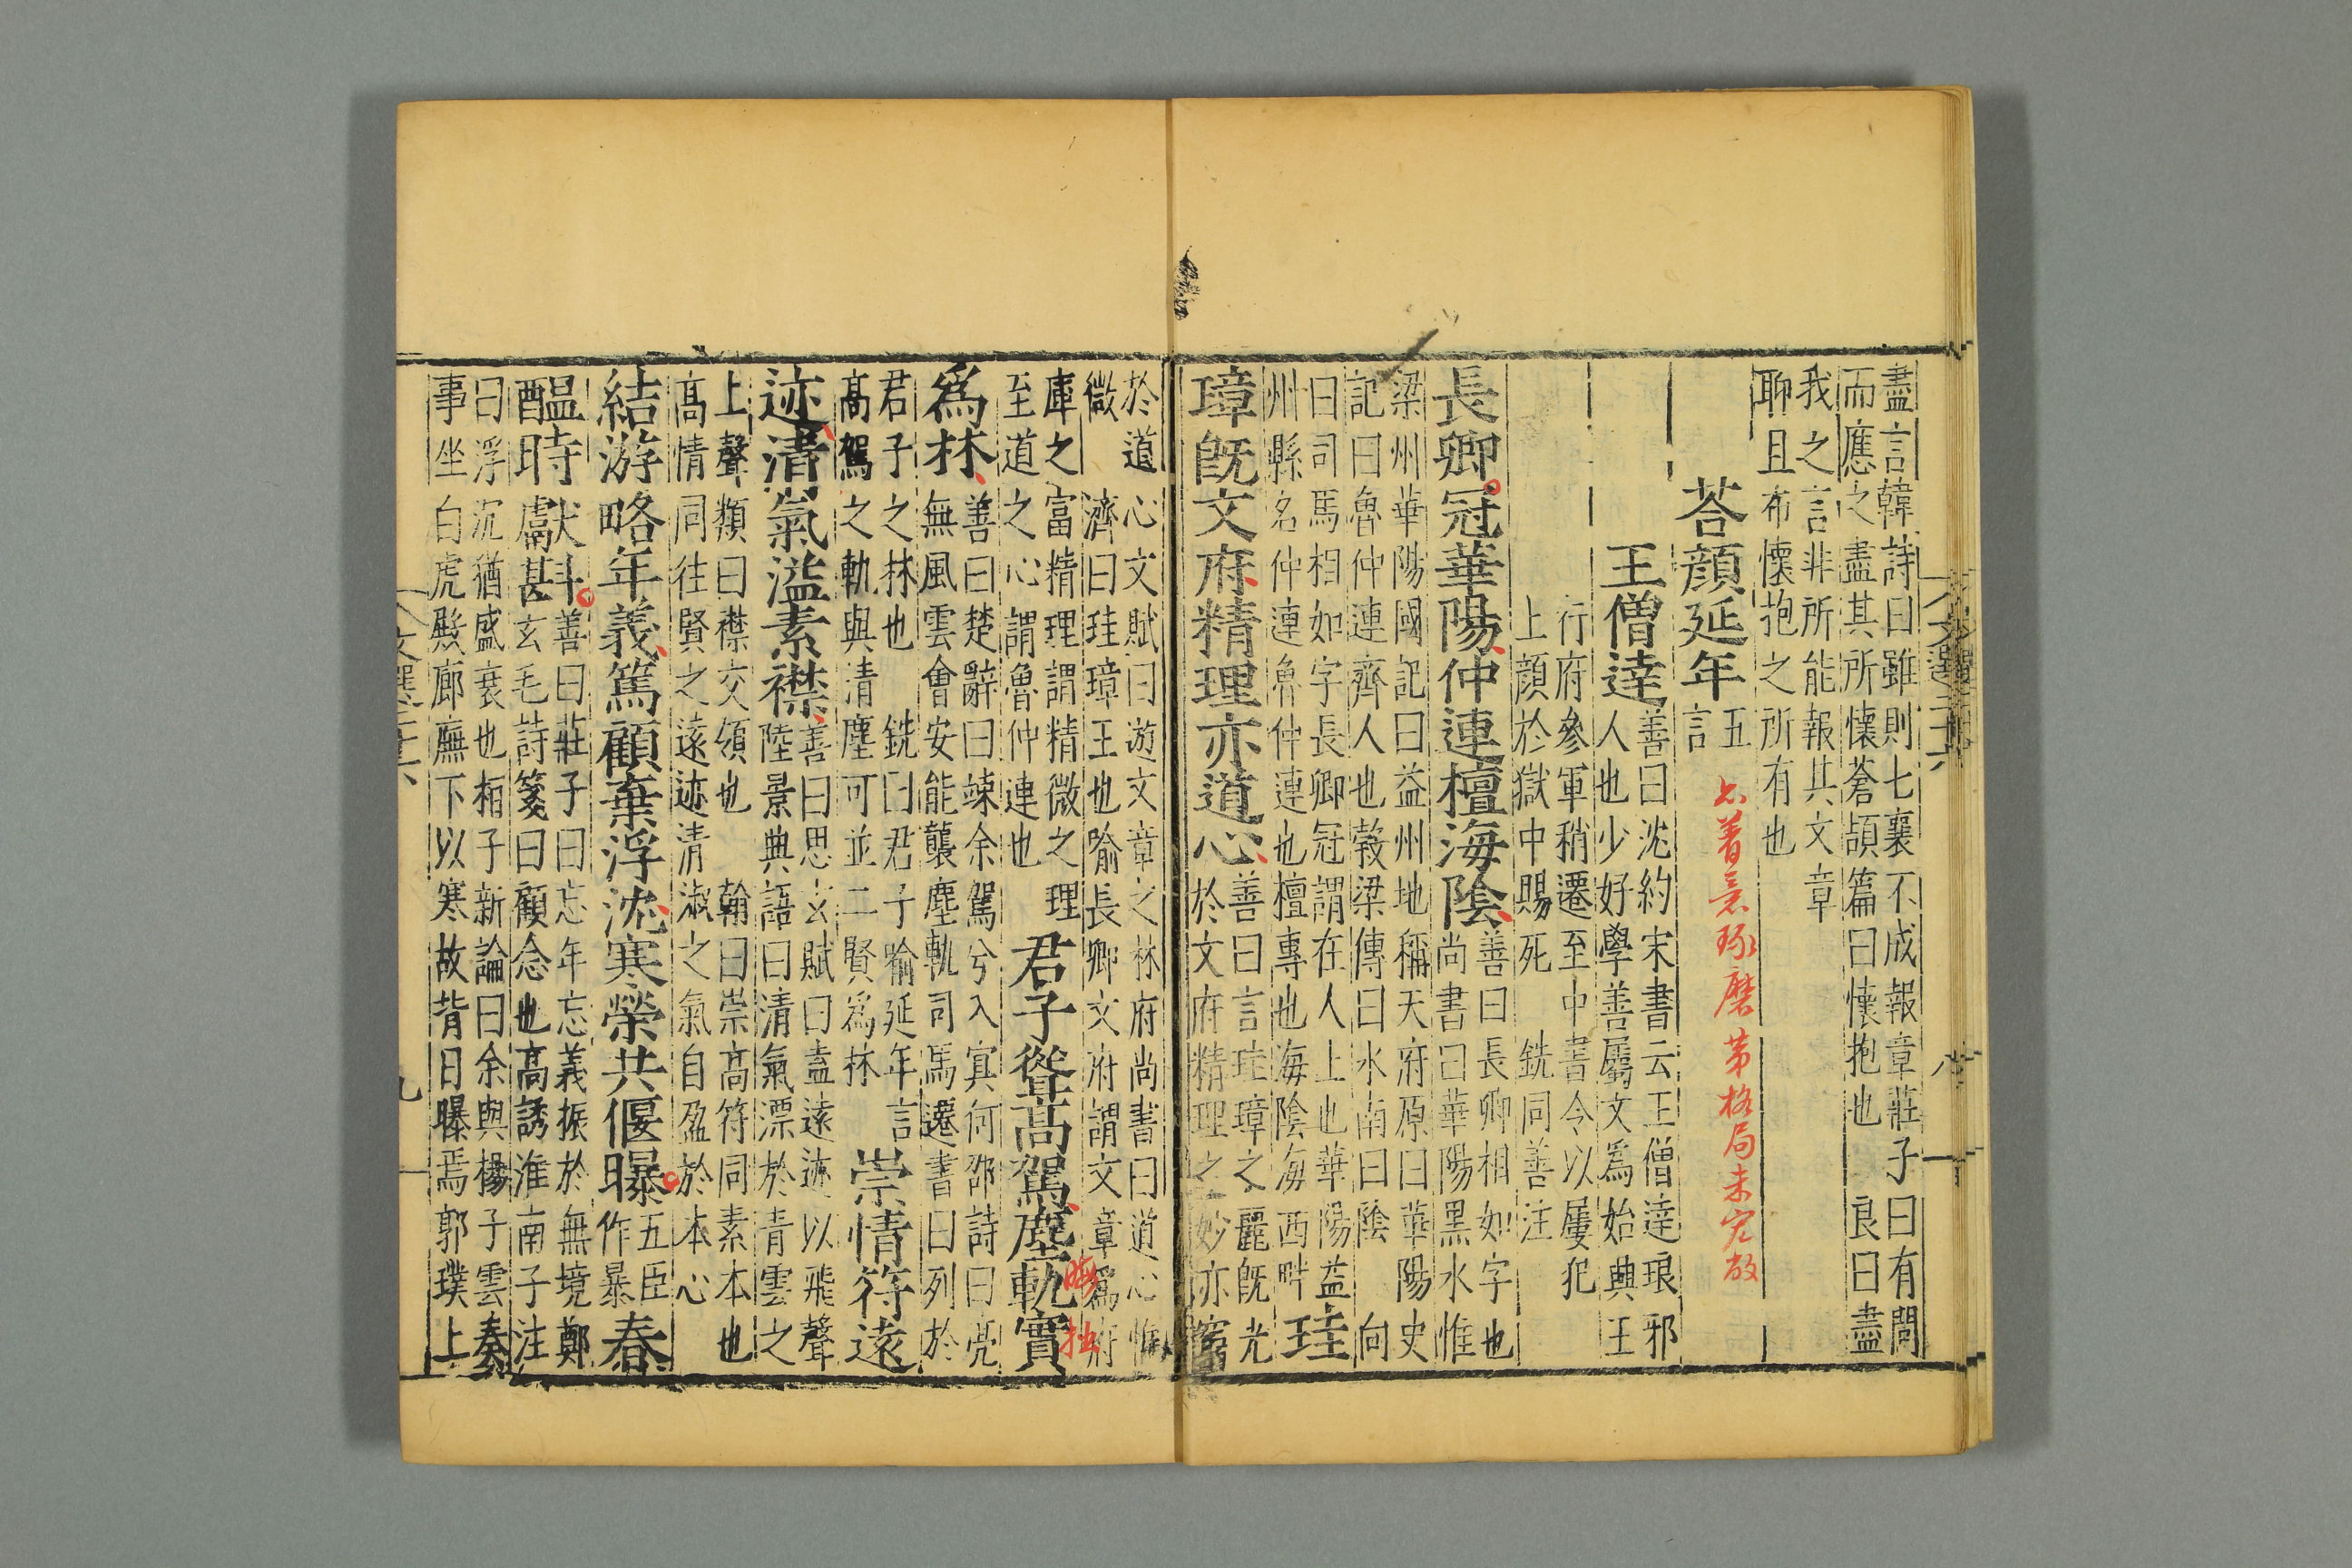 文選二十六
八
盡言韓詩曰雖則七襄不成報章莊子曰有問
而應之盡其所懷蒼頡篇曰懷抱也 良曰盡
我之言非所能報其文章
聊且布懷抱之所有也
荅顔延年 五言
亦着意琢磨第格局未宏敞
王僧達 善曰沈約宋書云王僧達琅邪
人也少好學善屬文爲始興王
行府參軍稍遷至中書令以屢犯
上顔於獄中賜死 銑同善注
長卿冠華陽仲連檀海陰 善曰長卿相如字也
尚書曰華陽黑水惟
梁州華陽國記曰益州地稱天府原曰華陽史
記曰魯仲連齊人也榖梁傳曰水南曰陰 向
曰司馬相如字長卿冠謂在人上也華陽益
州縣名仲連魯仲連也檀專也海陰海西畔 珪
璋既文府精理亦道心 善曰言珪璋之麗既光
於文府精理之妙亦窮
於道心文賦曰游文章之林府尚書曰道心惟
微 濟曰珪璋王也喻長卿文府謂文章爲府
庫之富精理謂精微之理
至道之心謂魯仲連也 君子聳高駕塵軌實
晦拙
爲林 善曰楚辭曰竦余駕兮入冥何邵詩曰亮
無風雲會安能襲塵軌司馬遷書曰列於
君子之林也 銑曰君子喻延年言
高駕之軌與清塵可並二賢爲林 崇情符遠
迹清氣溢素襟 善曰思玄賦曰盍遠迹以飛聲
陸景典語曰清氣漂於青雲之
上聲類曰襟交領也 翰曰崇高符同素本也
高情同往賢之遠迹清淑之氣自盈於本心
結游略年義篤顧棄浮沈寒榮共偃曝 五臣作暴 春
醖時獻斟 善曰莊子曰忘年忘義振於無境鄭
玄毛詩箋曰顧念也高誘淮南子注
曰浮沉猶盛衰也栢子新論曰余與楊子雲奏
事坐白虎殿廊廡下以寒故背日曝焉郭璞上
文選二十六
九